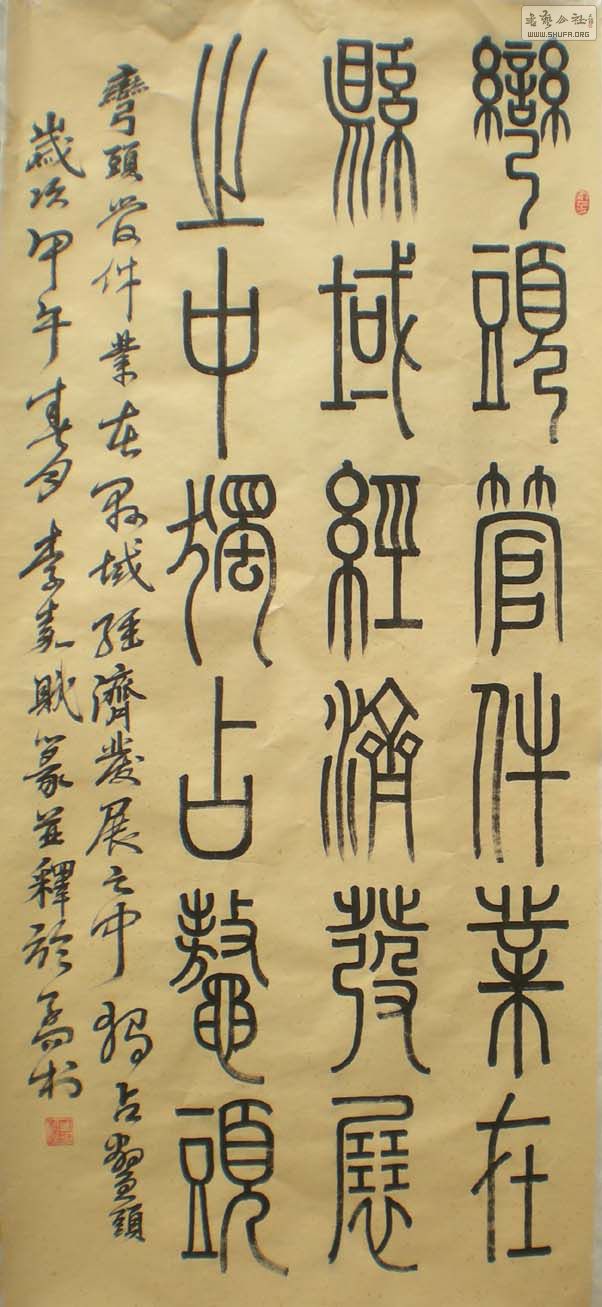 書藝公社
WWW.SHUFA.ORG
彎頭管件業在
縣域經濟發展
之中獨占鼇頭
彎頭管件業在縣域經濟發展之中獨占鼇頭
歲次甲午春月李賦篆並釋於孟村